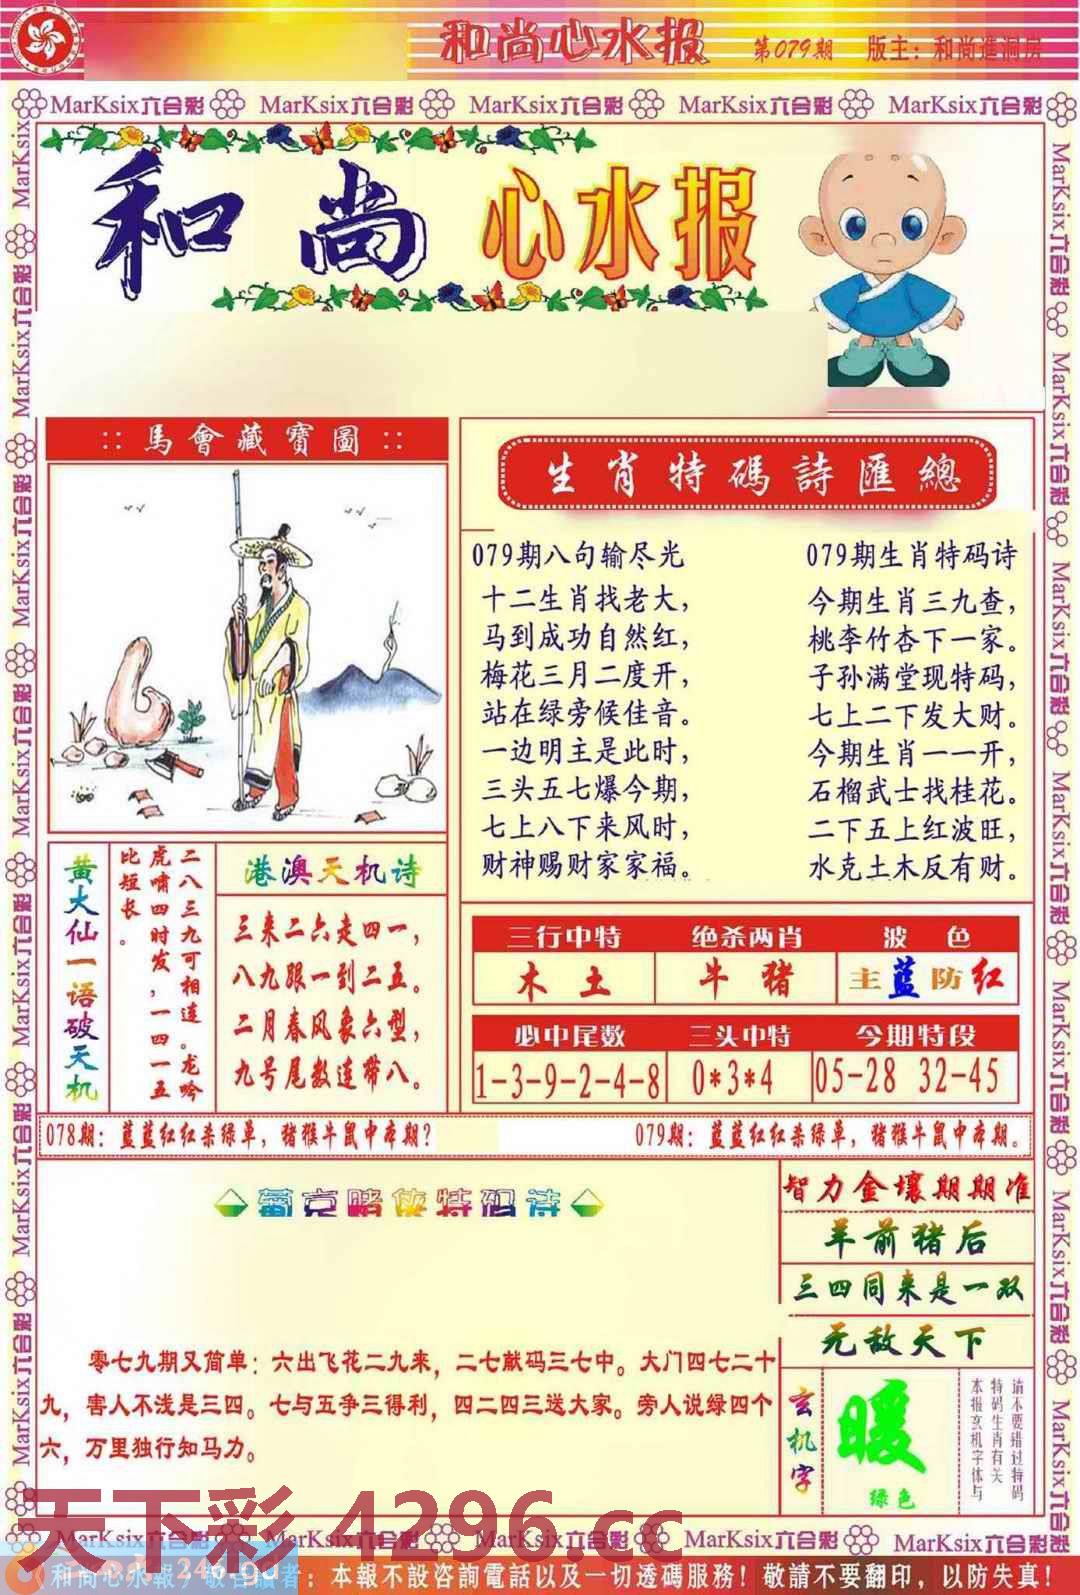 和尚心水报 第079期 版主：和尚進洞房
MarKsix六合彩 MarKsix六合彩 MarKsix六合彩 MarKsix六合彩 MarKsix六合彩
和尚心水报
::馬會藏寶圖::
生肖特碼詩匯總
079期八句输尽光
十二生肖找老大，
马到成功自然红，
梅花三月二度开，
站在绿旁候佳音。
一边明主是此时，
三头五七爆今期，
七上八下来风时，
财神赐财家家福。
079期生肖特码诗
今期生肖三九查，
桃李竹杏下一家。
子孙满堂现特码，
七上二下发大财。
今期生肖一一开，
石榴武士找桂花。
二下五上红波旺，
水克土木反有财。
黄大仙一语破天机
二八三九可相连。龙吟
虎啸四时发，一四一五
比短长。
港澳天机诗
三来二六走四一，
八九跟一到二五。
二月春风象六型，
九号尾数连带八。
三行中特 绝杀两肖 波色
木土 牛猪 主蓝防红
必中尾数 三头中特 今期特段
1-3-9-2-4-8 0*3*4 05-28 32-45
078期：蓝蓝红红杀绿单，猪猴牛鼠中本期？
079期：蓝蓝红红杀绿单，猪猴牛鼠中本期。
葡京赌侠特码诗
零七九期又简单：六出飞花二九来，二七献码三七中。大门四七二十
九，害人不浅是三四。七与五争三得利，四二四三送大家。旁人说绿四个
六，万里独行知马力。
智力金壤期期准
羊前猪后
三四同来是一双
无敌天下
玄机字
暖
绿色
请不要错过特码
特码生肖有关
本报玄机字体与
天下彩 4296.cc
MarKsix六合彩 MarKsix六合彩 MarKsix六合彩 MarKsix六合彩 MarKsix六合彩
和尚心水報，敬告讀者：本報不設咨詢電話以及一切透碼服務！敬請不要翻印，以防失真！